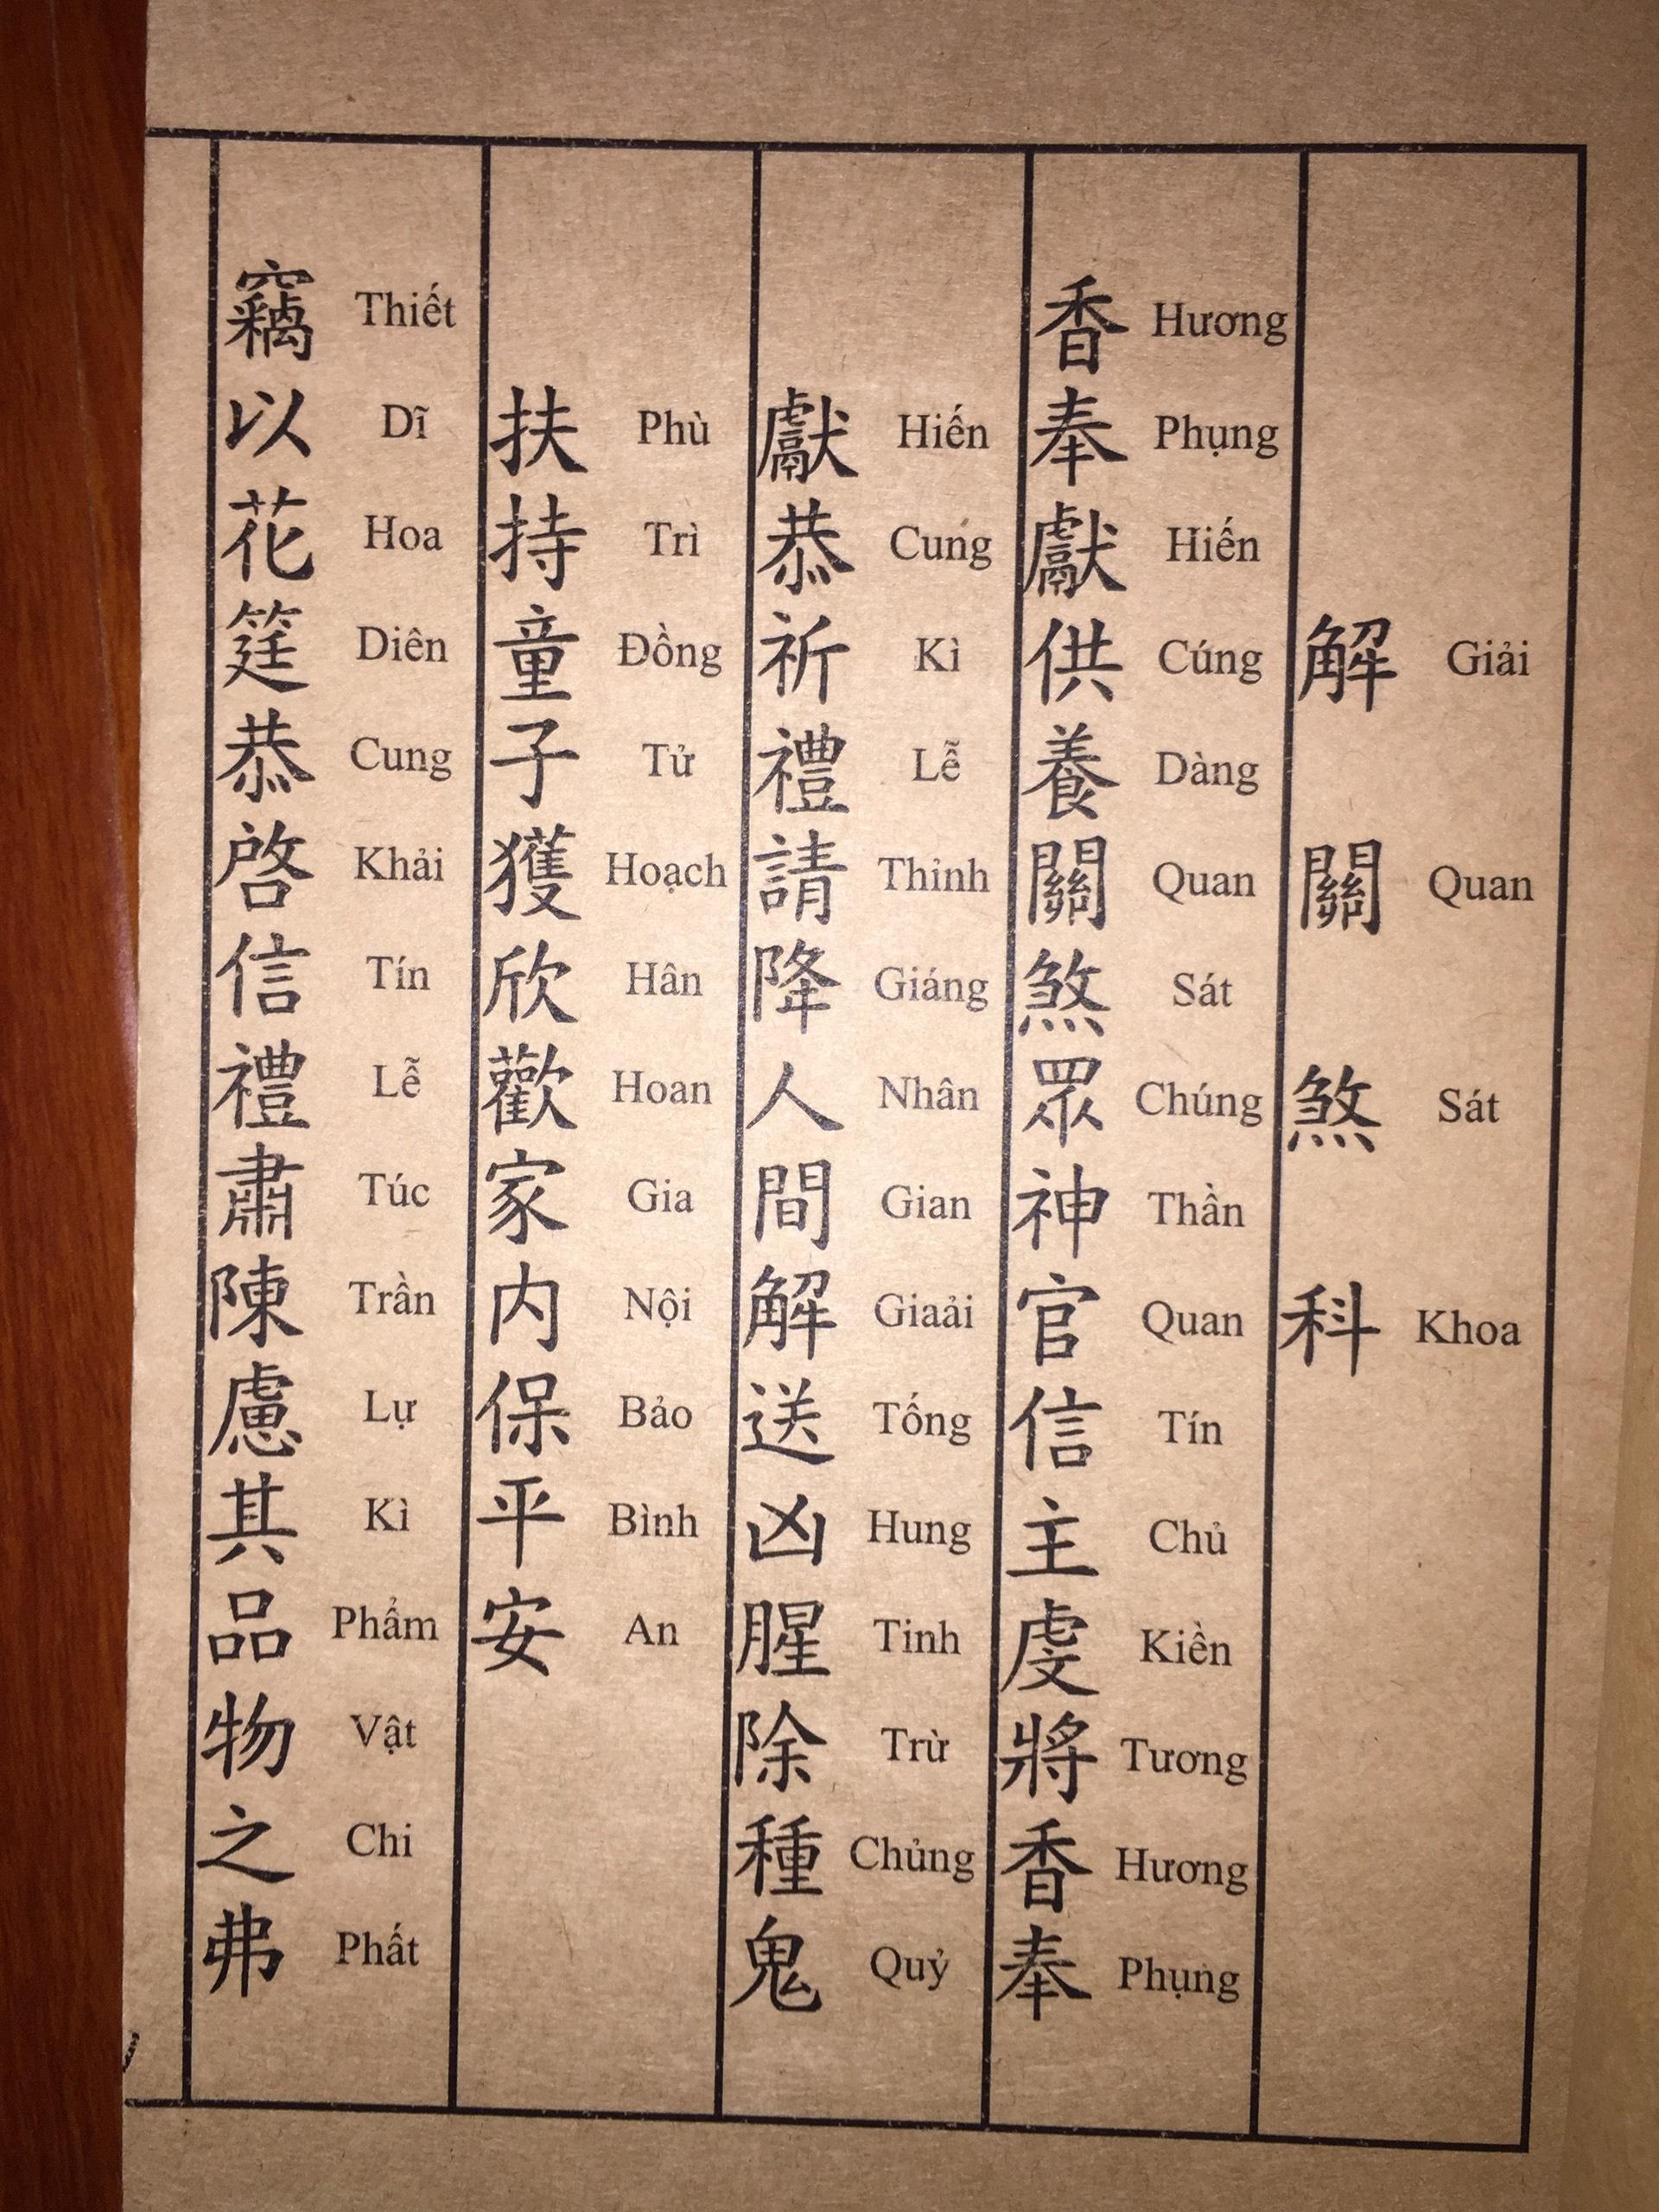 解 Giải
關 Quan
煞 Sát
科 Khoa
香 Hương
奉 Phụng
獻 Hiến
供 Cúng
養 Dàng
關 Quan
煞 Sát
眾 Chúng
神 Thần
官 Quan
信 Tín
主 Chủ
虔 Kiền
將 Tương
香 Hương
奉 Phụng
獻 Hiến
恭 Cung
祈 Kì
禮 Lễ
請 Thỉnh
降 Giáng
人 Nhân
間 Gian
解 Giaải
送 Tống
凶 Hung
腥 Tinh
除 Trừ
種 Chủng
鬼 Quỷ
扶 Phù
持 Trì
童 Đồng
子 Tử
獲 Hoạch
欣 Hân
歡 Hoan
家 Gia
内 Nội
保 Bảo
平 Bình
安 An
竊 Thiết
以 Dĩ
花 Hoa
筵 Diên
恭 Cung
啓 Khải
信 Tín
禮 Lễ
肅 Túc
陳 Trần
慮 Lự
其 Kì
品 Phẩm
物 Vật
之 Chi
弗 Phất